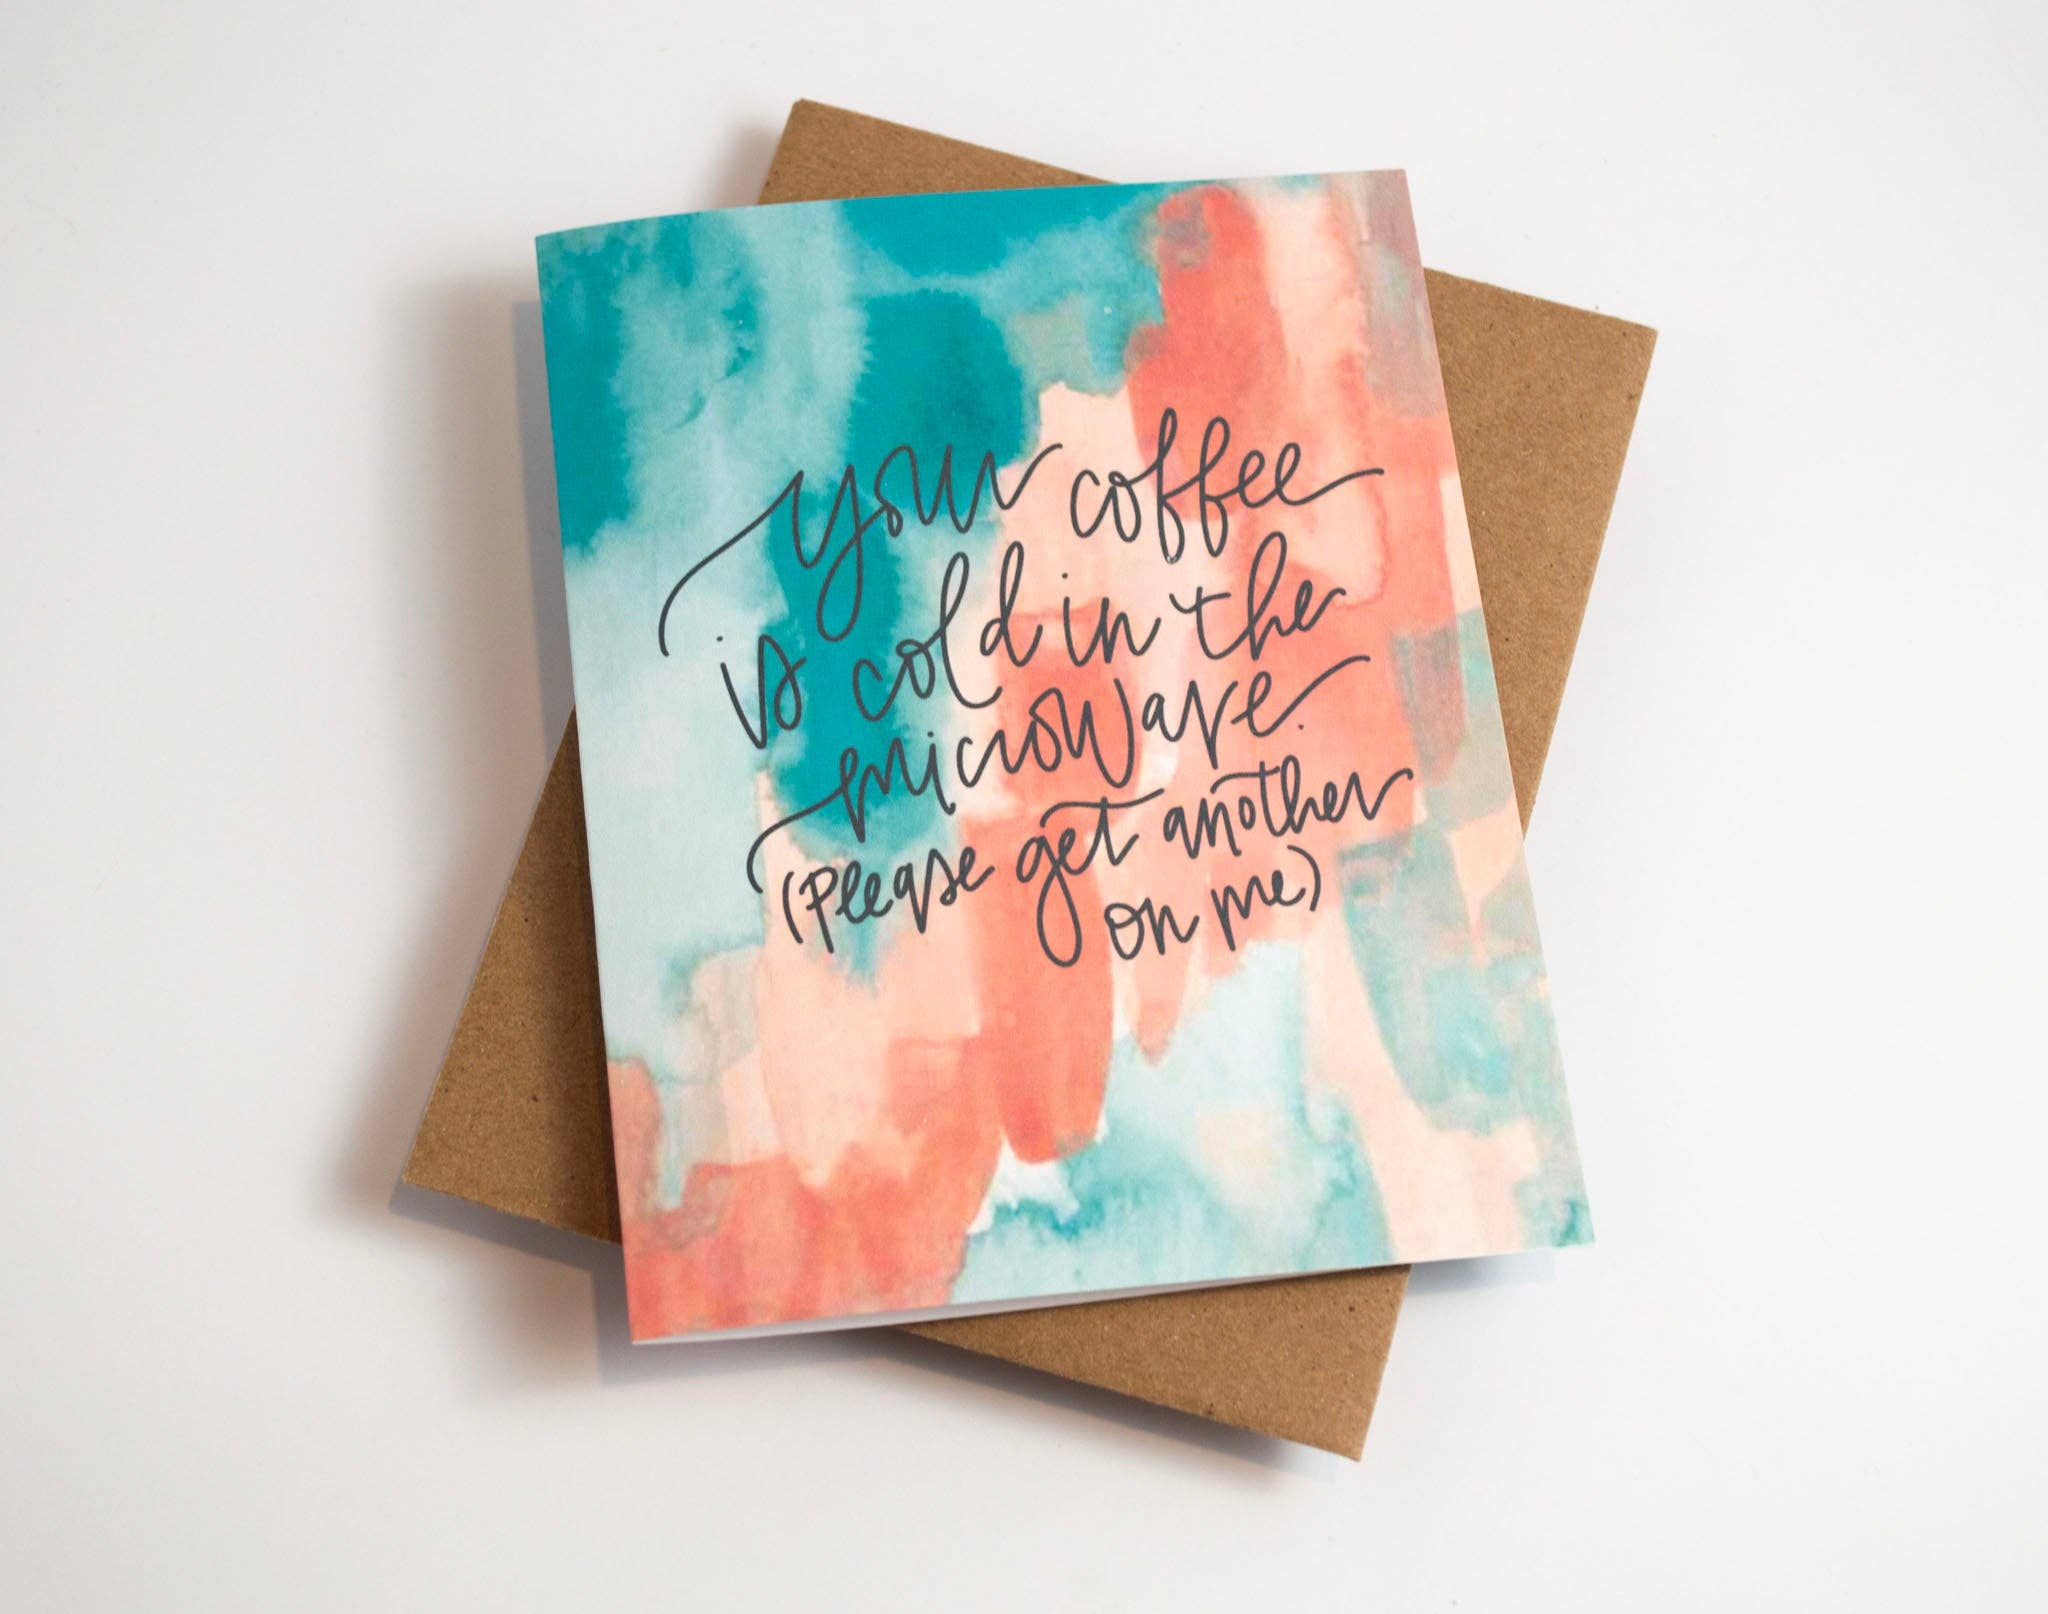 your coffee
is cold in the
microwave.
(please get another
on me)